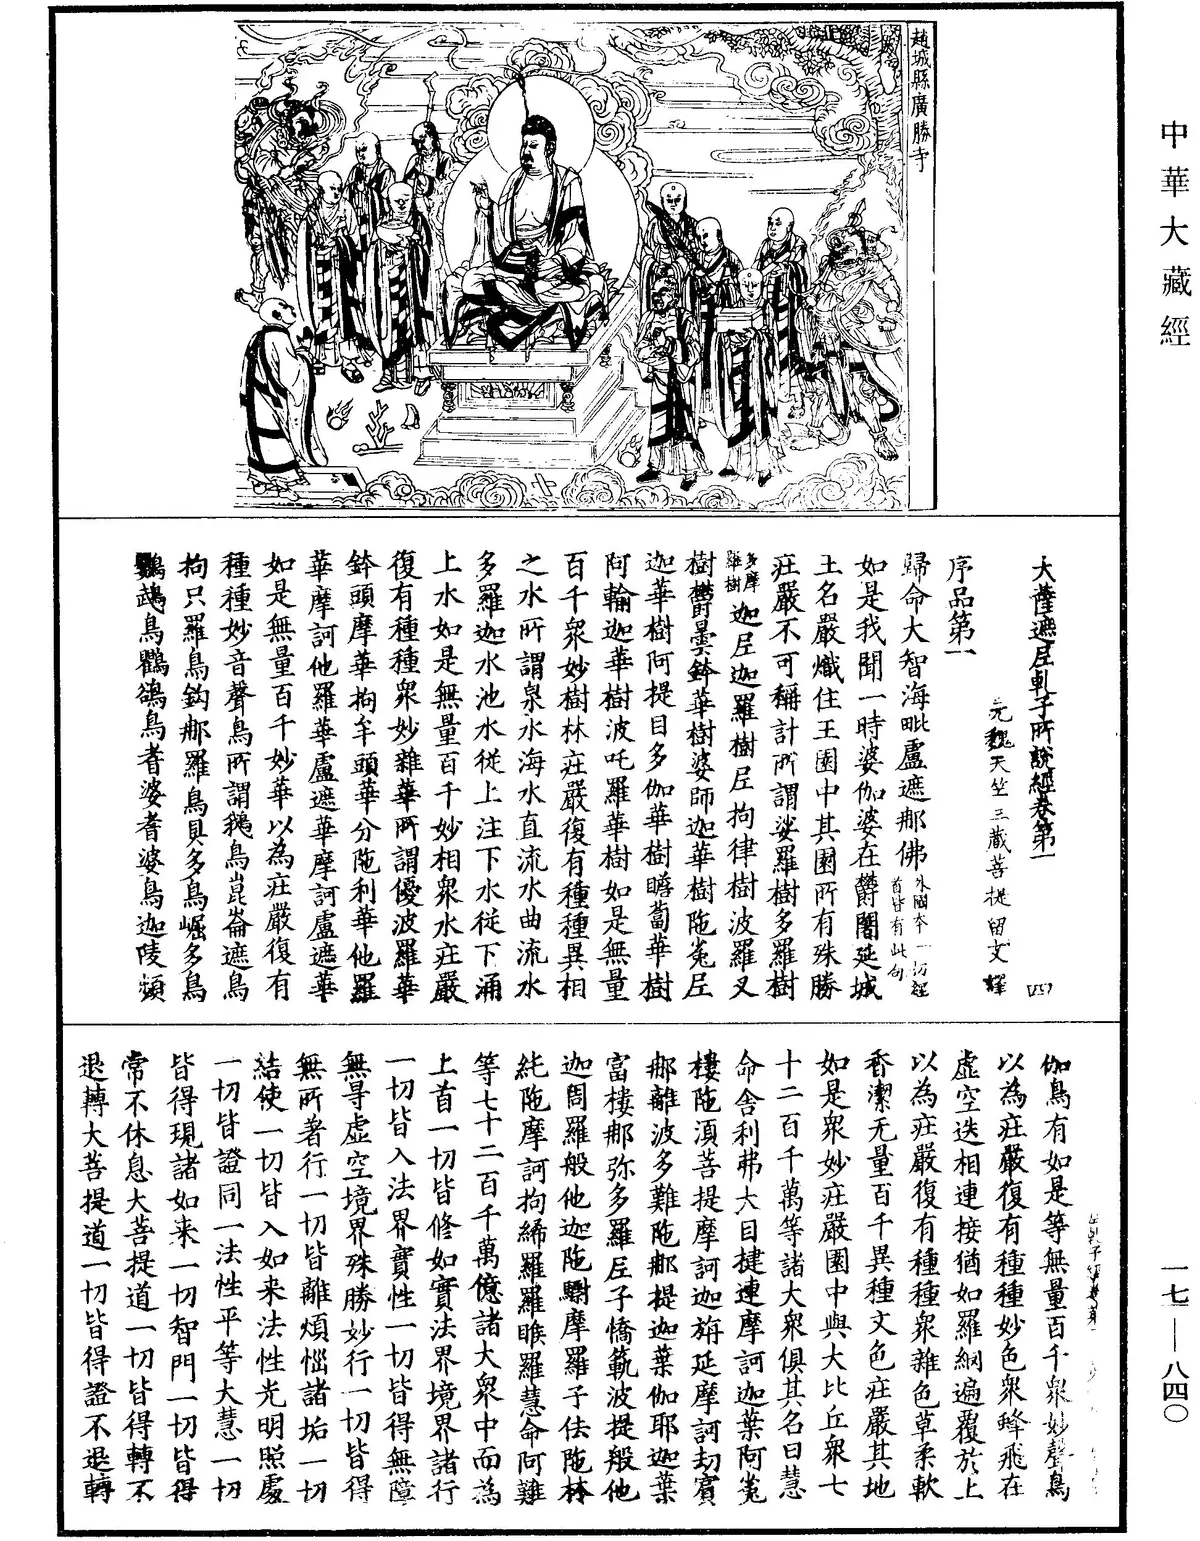 中華大藏經
一七—八四〇
趙城縣廣勝寺
大薩遮尼乹子所說經卷第一
元魏天竺三藏菩提留支譯
序品第一
歸命大智海毗盧遮那佛外國本一切經首皆有此句
如是我聞一時婆伽婆在欝闍延城
王名嚴熾住王園中其園所有殊勝
莊嚴不可稱計所謂娑羅樹多羅樹
多摩羅樹迦尼迦羅樹尼拘律樹波羅叉
樹欝曇鉢華樹婆師迦華樹陁㝹尼
迦華樹阿提目多伽華樹瞻蔔華樹
阿輸迦華樹波吒羅華樹如是無量
百千衆妙樹林莊嚴復有種種異相
之水所謂泉水海水直流水曲流水
多羅迦水池水從上注下水從下涌
上水如是無量百千妙相衆水莊嚴
復有種種衆妙雜華所謂優波羅華
鉢頭摩華拘牟頭華分陁利華他羅
華摩訶他羅華盧遮華摩訶盧遮華
如是無量百千妙華以為莊嚴復有
種種妙音聲鳥所謂鵝鳥崑崙遮鳥
拘只羅鳥鈎那羅鳥貝多鳥崛多鳥
鸚鵡鳥鸜鵒鳥耆婆耆婆鳥迦陵頻
伽鳥有如是等無量百千衆妙聲鳥
以為莊嚴復有種種妙色衆蜂飛在
虛空迭相連接猶如羅網遍覆於上
以為莊嚴復有種種衆雜色草柔軟
香潔无量百千異種文色莊嚴其地
如是衆妙莊嚴園中與大比丘衆七
十二百千萬等諸大衆俱其名曰慧
命舍利弗大目揵連摩訶迦葉阿㝹
樓陁須菩提摩訶迦旃延摩訶劫賓
那離波多難陁那提迦葉伽耶迦葉
富樓那弥多羅尼子憍範波提般他
迦周羅般他迦陁驃摩羅子佉陁林
純陁摩訶拘絺羅羅睺羅慧命阿難
等七十二百千萬億諸大衆中而為
上首一切皆修如實法界境界諸行
一切皆入法界實性一切皆得無障
無㝵虛空境界殊勝妙行一切皆得
無所著行一切皆離煩惱諸垢一切
結使一切皆入如来法性光明照處
一切皆證同一法性平等大慧一切
皆得現諸如来一切智門一切皆得
常不休息大菩提道一切皆得轉不
退轉大菩提道一切皆得證不退轉